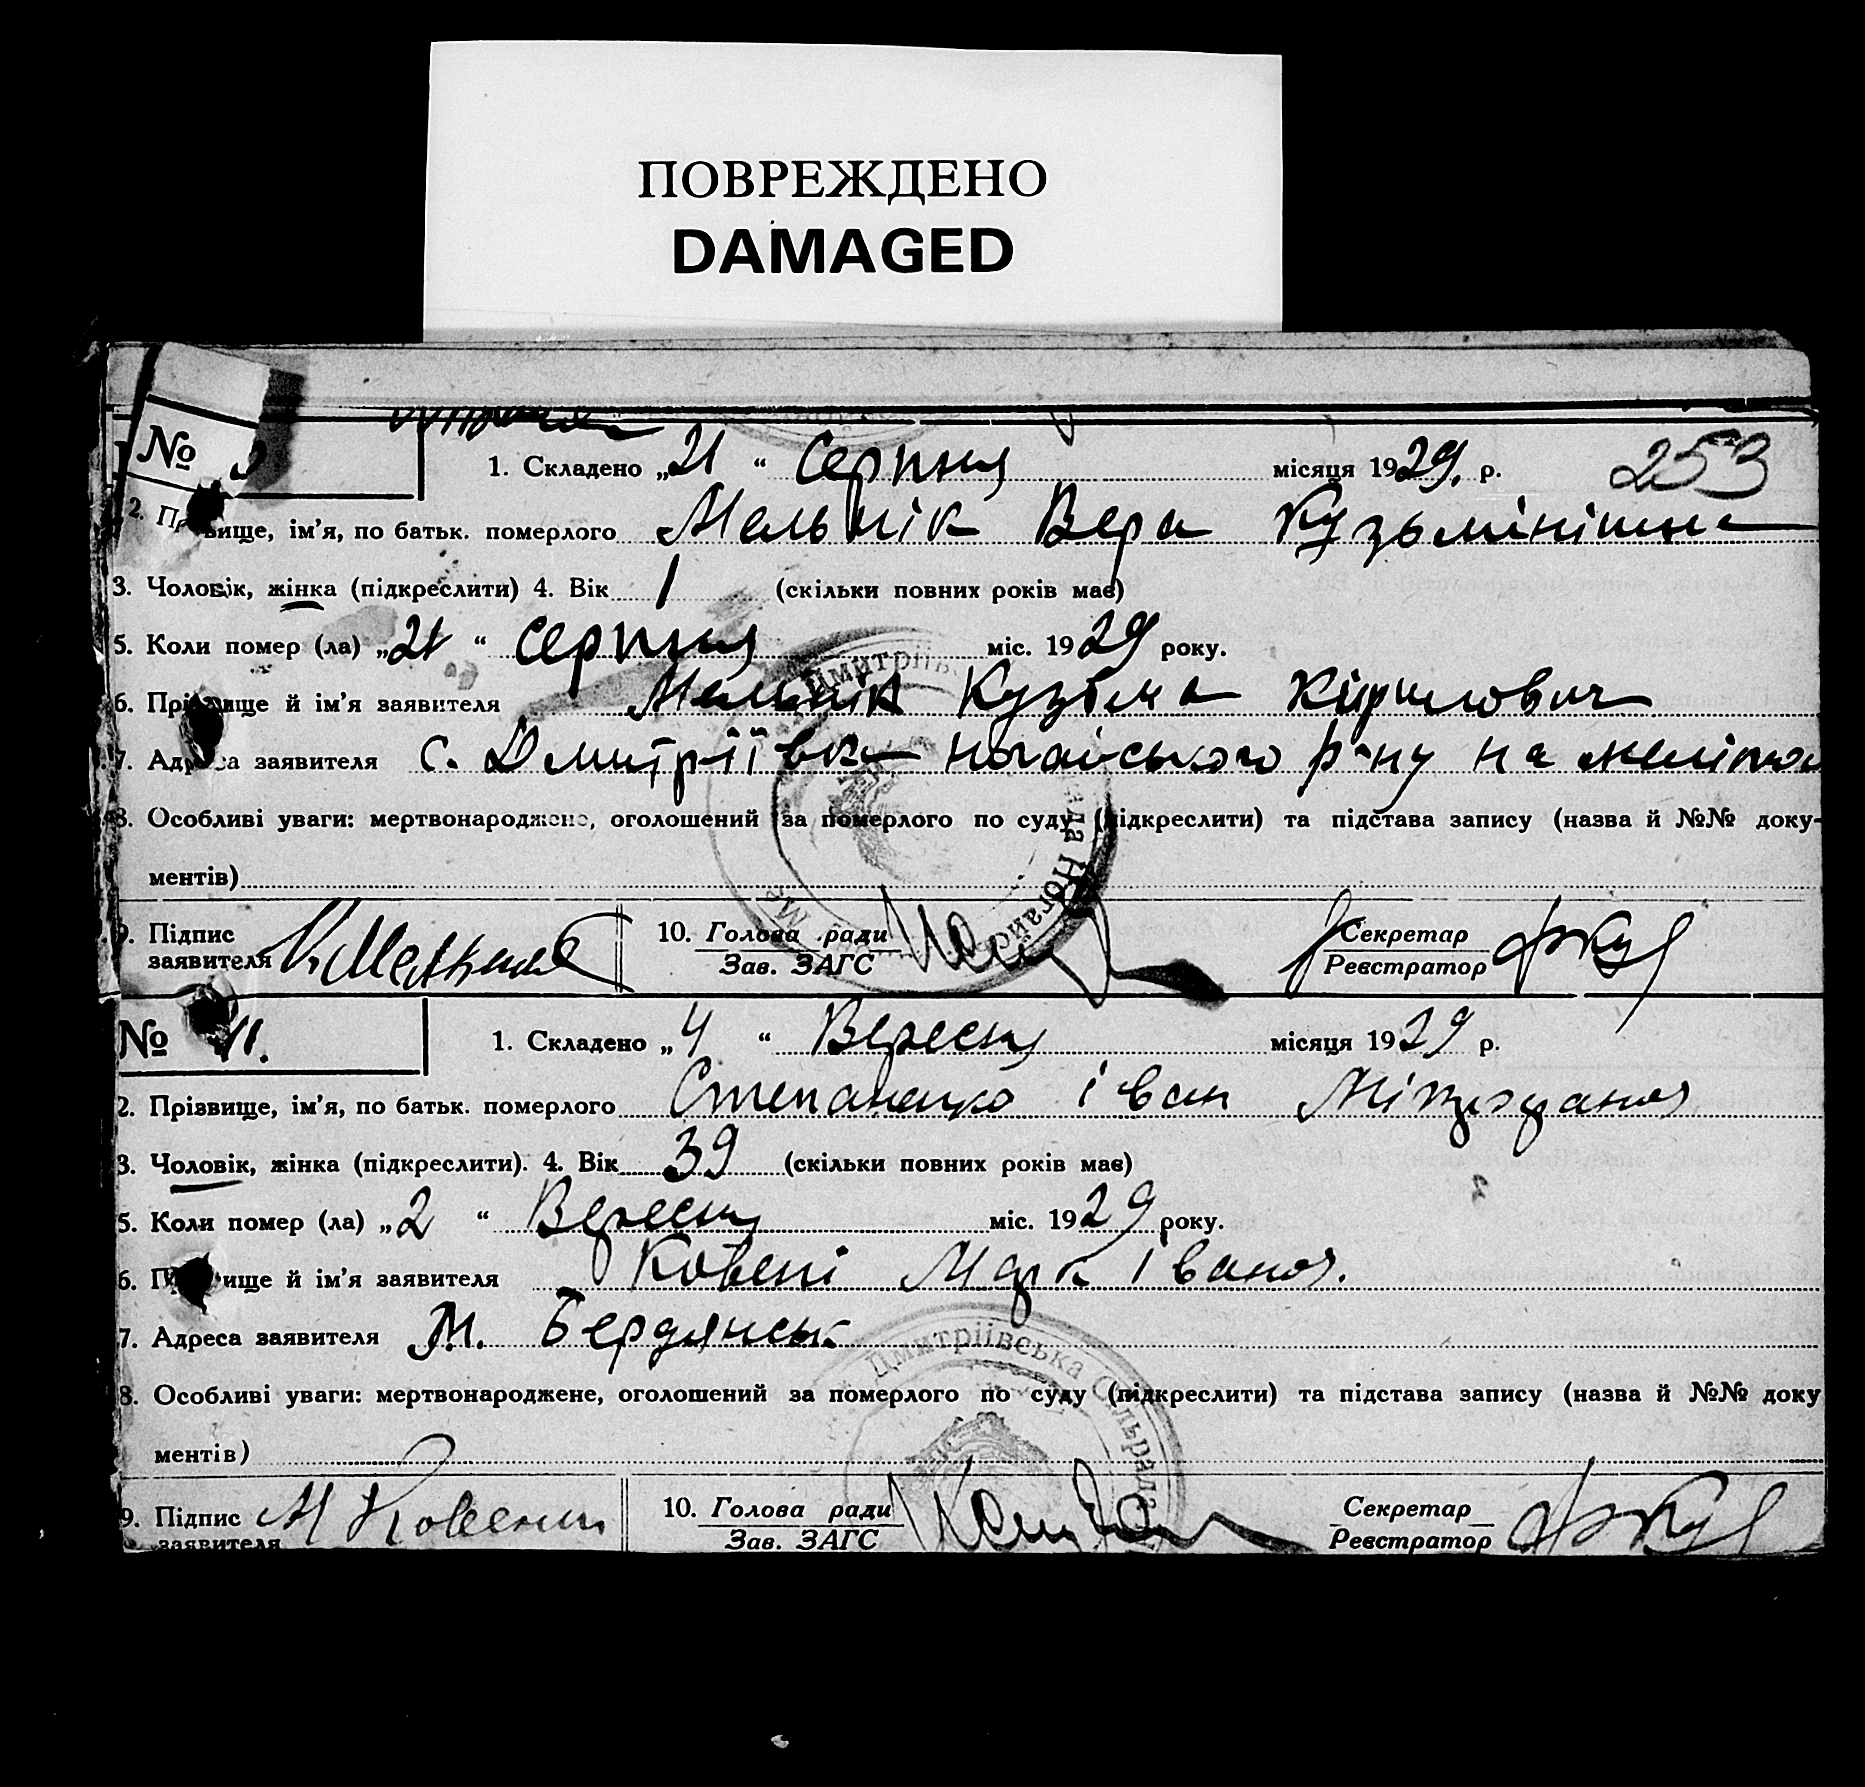 ПОВРЕЖДЕНО
DAMAGED
№
1. Складено „21“ Серпня місяця 1929. р. 253
2. Прізвище, ім’я, по батьк. померлого Мельнік Вера Кузьмінішна
3. Чоловік, жінка (підкреслити) 4. Вік 1 (скільки повних років має)
5. Коли помер (ла) „21“ серпня міс. 1929 року.
6. Прізвище й ім’я заявителя Мельнік Кузьма Кірилович
7. Адреса заявителя с. Дмитріївка Ногайського р-ну на
8. Особливі уваги: мертвонароджене, оголошений за померлого по суду (підкреслити) та підстава запису (назва й №№ доку-
ментів)
9. Підпис заявителя К. 10. Голова ради Зав. ЗАГС Секретар Реєстратор
№ 11.
1. Складено „4“ Вересня місяця 1929 р.
2. Прізвище, ім’я, по батьк. померлого Степаненко Іван
3. Чоловік, жінка (підкреслити). 4. Вік 39 (скільки повних років має)
5. Коли помер (ла) „2“ Вересня міс. 1929 року.
6. Прізвище й ім’я заявителя Марк Іванов.
7. Адреса заявителя М. Бердянськ
8. Особливі уваги: мертвонароджене, оголошений за померлого по суду (підкреслити) та підстава запису (назва й №№ доку
ментів)
9. Підпис заявителя М 10. Голова ради Зав. ЗАГС Секретар Реєстратор
Дмитріївська Сільрада